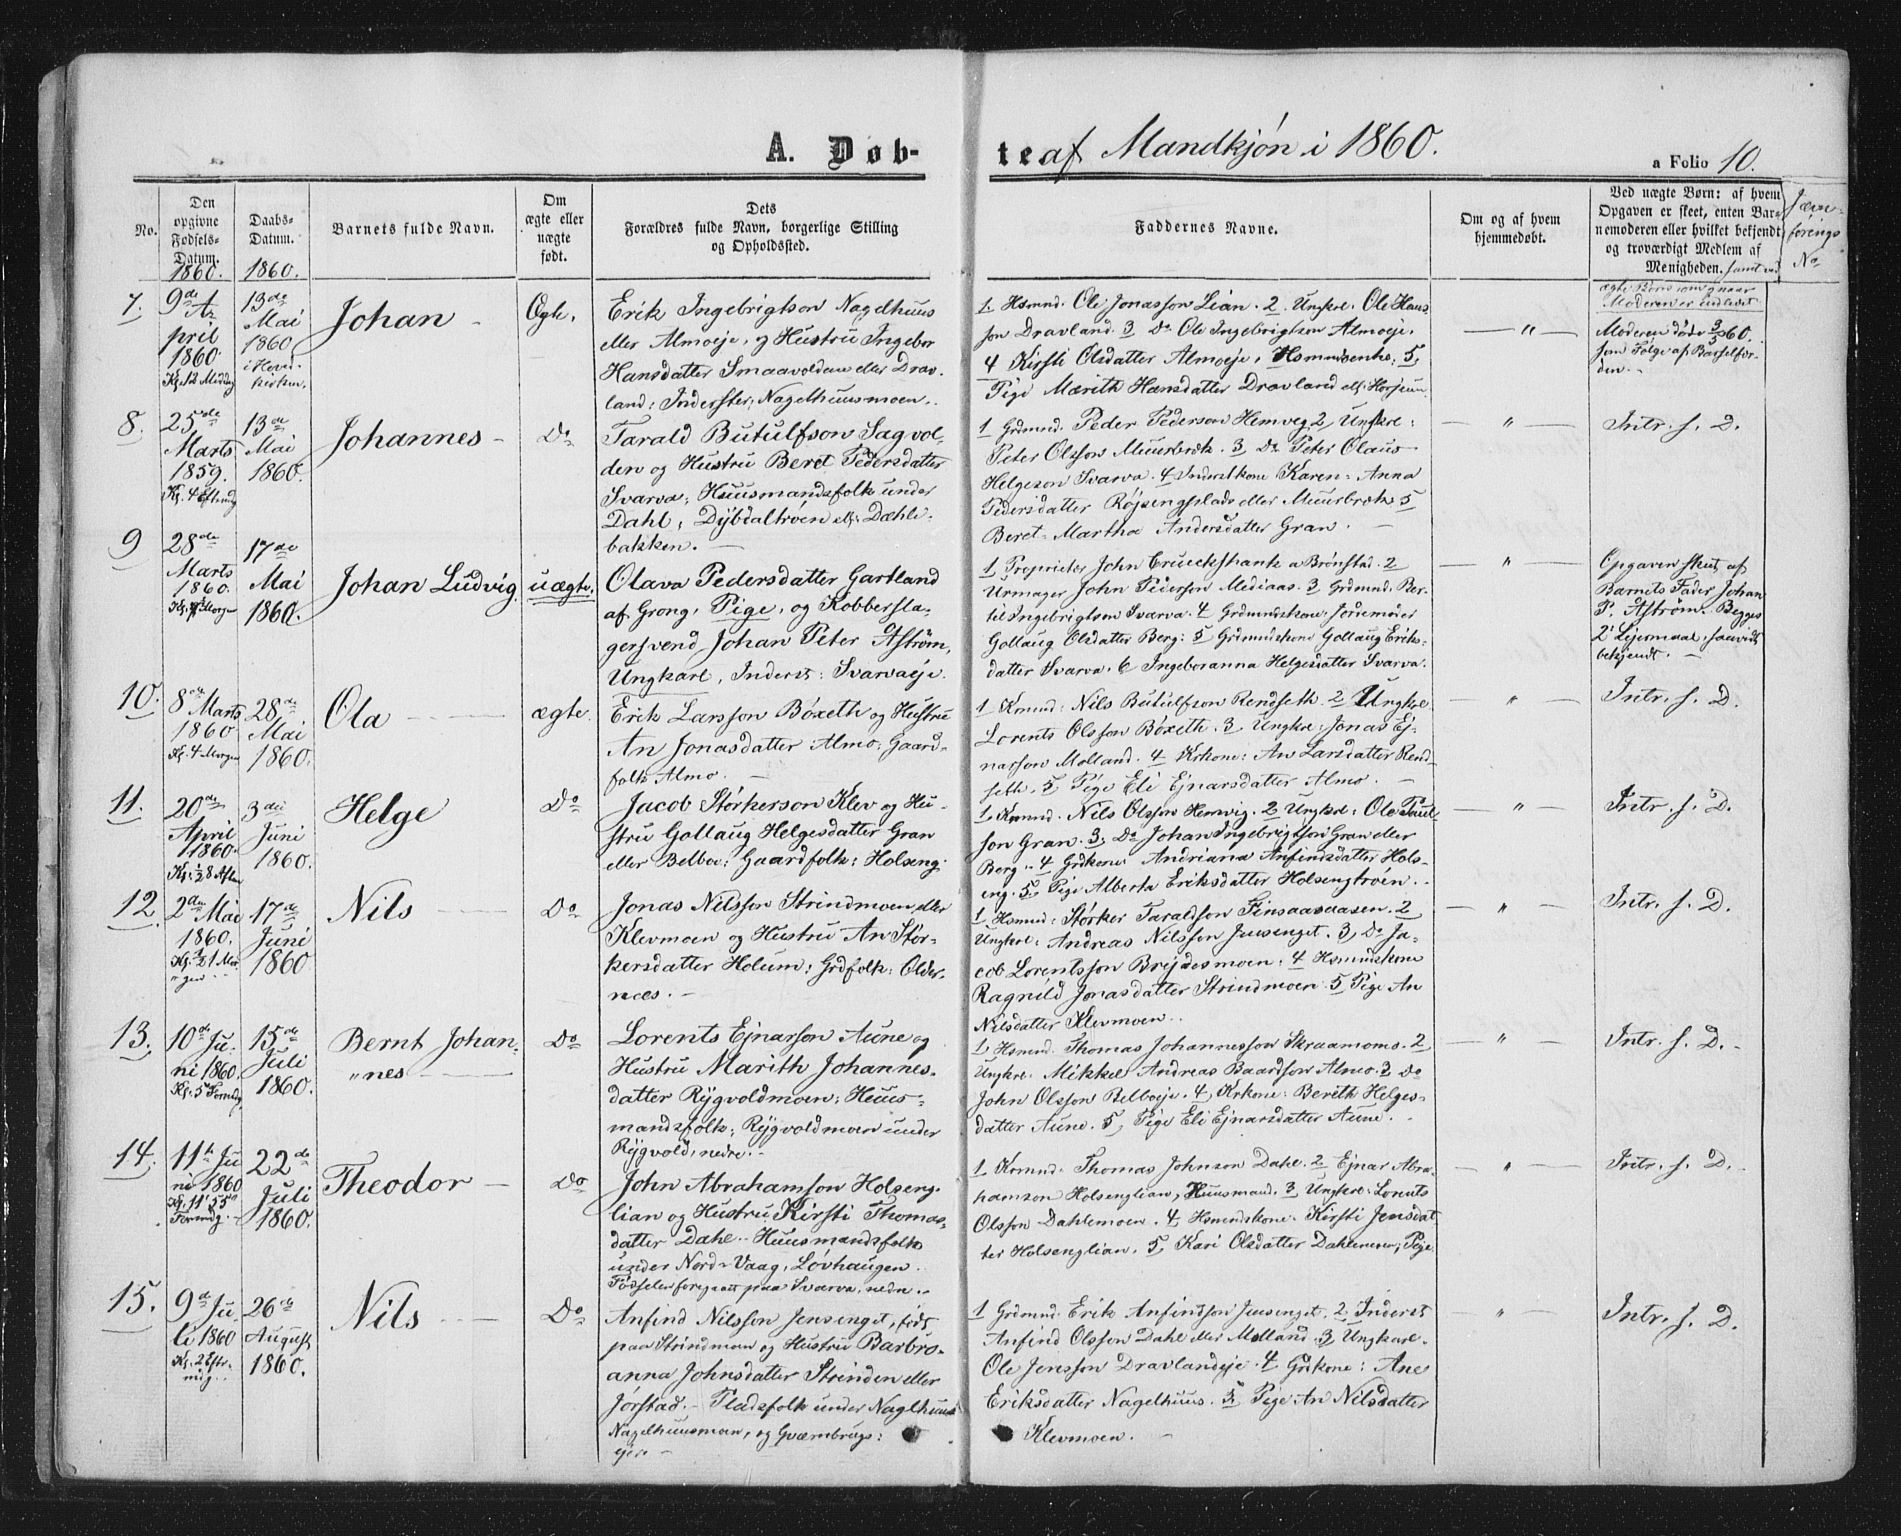 A. Døb-
te af Mandkjøn i 1860.
a Folio 10.
No.
Den opgivne Fødsels-Datum.
1860.
Daabs-Datum.
1860.
Barnets fulde Navn.
Om ægte eller uægte født.
Dets Forældres fulde Navn, borgerlige Stilling og Opholdssted.
Faddernes Navne.
Om og af hvem hjemmedøbt.
Ved uægte Børn: af hvem Opgaven er skeet, enten Barnemoderen eller hvilket bekjendt og troværdigt Medlem af Menigheden. samt ved
ægte Børn om og naar
Moderen er indledet
Jævnførings No
7.
9de April 1860
Kl. 12 Middag
13de Mai 1860
i Hovedkirken.
Johan
Ægte.
Erik Ingebrigtson Nagelhuus
eller Almoeje, og Hustru Ingebor
Hansdatter Smaavolden eller Drav-
land: Inderster, Nagelhuusmoen.
1 Hsmnd. Ole Jonasson Lian. 2 Ungkrl. Ole Hans
son Dravland. 3 Do Ole Ingebrigtson Almoeje.
4 Kirsti Olsdatter Almoeje, Hsmndsenke; 5,
Pige Marith Hansdatter Dravland ell:
— " —
Moderen døde 3/5 60.
som Følge af Barselfor-
den.
8.
25de Marts 1859.
Kl. 4 Eftmdg
13de Mai 1860.
Johannes
Do
Tarald Butulfson Sagvol-
den og Hustru Beret Pedersdatter
Svarva; Huusmandsfolk under
Dahl; Dybdaltrøen ell: Dæhli-
bakken.
1 Grdmnd. Peder Pederson Hemveg 2 Ungkrl:
Peter Olsson Muurbræk. 3 Do Peter Olaus
Helgeson Svarva. 4 Inderstkone Karen-Anna
Pedersdatter Røjsengplads eller Muurbræk. 5
Beret-Martha Andersdatter Gran.
— " —
Intr. s. D.
9
28de Marts 1860.
17de Mai 1860.
Johan Ludvig.
uægte.
Olava Pedersdatter Gartland
af Grong, Pige, og Kobbersla-
gersvend Johan Peter Åström,
Ungkarl, Inderst: Svarvaeje.
1 Proprietær John Crueckshank a Brønstad. 2
Urmager John Pederson Mediaas. 3 Grdmnd. Ber-
til Ingebrigtson Svarva. 4 Grdmndskone, Jordemoder
Gollaug Olsdatter Berg: 5 Grdmndskone Gollaug Eriks-
datter Svarva. 6 Ingeboranna Helgesdatter Svarva.
— " —
Opgaven skeet af
Barnets Fader Johan
P. Åström. Begges
2' Lejermaal, saavidt
bekjendt.
10.
8de Marts 1860
Kl. 4 Morgen
28de Mai 1860.
Ola
ægte.
Erik Larsson Böxeth og Hustru
An Jonasdatter Almo: Gaard-
folk Almo.
1 Krmnd: Nils Butulfson Rendseth. 2 Ungkrl
Lorents Olsson Böxeth. 3 Ungkrl: Jonas Ej-
narson Molland. 4 Krkone: An Larsdatter Rend-
seth. 5 Pige Eli Ejnarsdatter Almo.
— " —
Intr. s. D.
11.
20de April 1860.
Kl: 1/2 8 Aften
3die Juni 1860.
Helge
Do
Jacob Størkerson Klev og Hu-
stru Gollaug Helgesdatter Gran
eller Belboe: Gaardfolk: Holseng.
1, Krmnd. Nils Olsson Hemvig. 2 Ungkrl: Ole Paul
son Gran. 3, Do Johan Ingebrigtson Gran eller
Berg. 4 Grdkone: Andriana Anfindsdatter Hols-
eng. 5, Pige Alberta Eriksdatter Holsengtröen.
— " —
Intr. s. D.
12
2den Mai 1860.
17de Juni 1860
Nils
Do
Jonas Nilsson Strindmoen eller
Klevmoen og Hustru An Stør-
kersdatter Holum: Grdfolk: Older-
næs.
1 Hsmnd: Størker Taraldson Finsaasaasen. 2
Ungkrl: Andreas Nilsson Juusenget. 3, Do Ja-
cob Lorentsson Brejdesmoen. 4 Hsmndskone
Ragnild Jonasdatter Strindmoen 5 Pige An
Nilsdatter Klevmoen.
— " —
Intr. s. D.
13.
10de Juni 1860.
Kl: 5 Formdg
15de Juli 1860.
Bernt Johan-
"nes
Do
Lorents Ejnarson Aune og
Hustru Marith Johannes-
datter Rygvoldmoen; Huus-
mandsfolk: Rygvoldmoen under
Rygvold, nedre.
1 Hsmnd. Thomas Johannesson Skraamoms. 2
Ungkrl. Mikkel Andreas Baardson Almo. 3 Do
John Olsson Belboeje. 4, Krkone: Berith Helges-
datter Aune. 5, Pige Eli Ejnarsdatter Aune.
— " —
Intr. s. D.
14.
11te Juni 1860
Kl. 11' 55" Formdg.
22de Juli 1860.
Theodor
Do
John Abrahamson Holseng-
lian og Hustru Kirsti Thomas-
datter Dahl. Huusmandsfolk
under Nord-Vaag, Løvhaugen.
Fødselen foregaatt paa Svarva, nedre.
1 Krmnd. Thomas Johnson Dahl. 2 Ejnar Abra-
hamson Holsenglian, Huusmand. 3 Ungkrl: Lorents
Olsson Dahlemoen. 4 Hsmndskone. Kirsti Jensdat
ter Holsenglian. 5, Kari Olsdatter Dahlemoen, Pige.
— " —
Intr. s. D.
15.
9de Juli 1860
Kl. 2 Eftr-
mdg.
26de August 1860.
Nils
Do
Anfind Nilsson Jensenget, født
paa Strindmoen og Hustru Barbro-
anna Johnsdatter Strinden eller
Jørstad. Pladsfolk under Naglhuus
Nagelhuusmoen, og Qværnbrugs:
ejere
1 Grdmnd. Erik Anfindson Juusenget. 2 Inderst
Anfind Olsson Dahl eller Molland. 3, Ungkarl-
Ole Jensson Dravlandeje. 4 Grdkone: Ane
Eriksdatter Nagelhuus. 5 Pige An Nilsdatter
Klevmoen.
"
Intr. s. D.